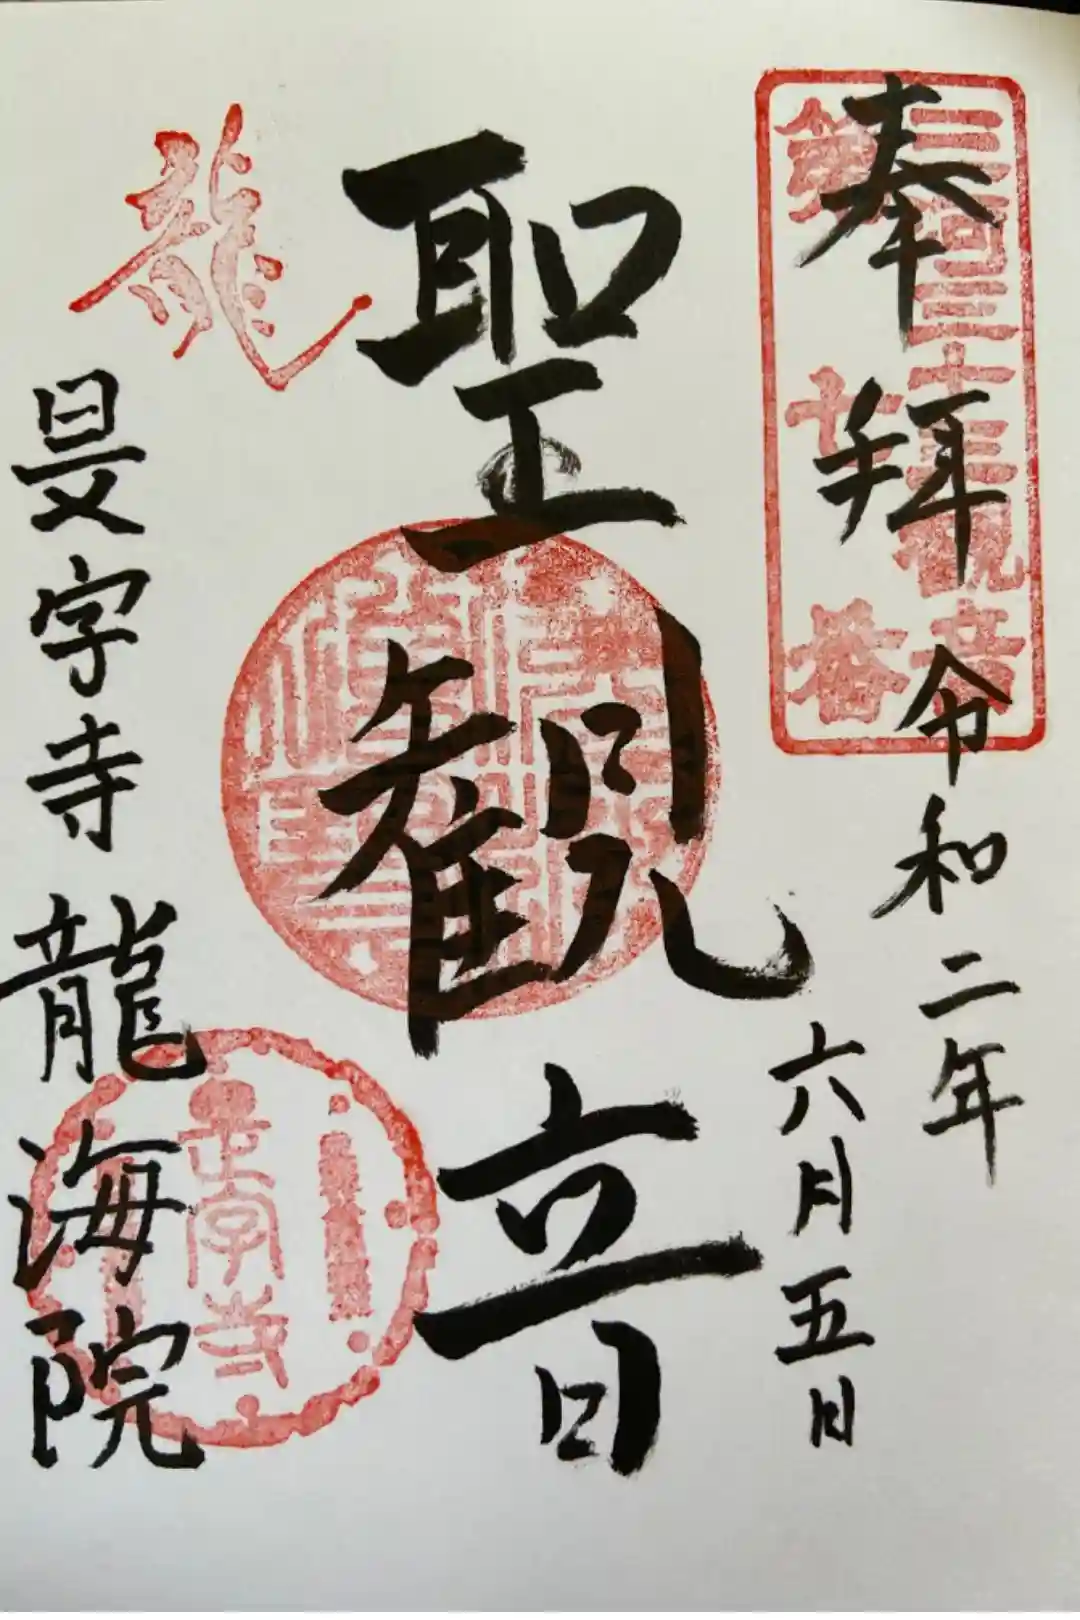 奉拝 令和二年
六月五日
三河三十三観音
第七番
聖観音
龍
是字寺 龍海院
是字寺